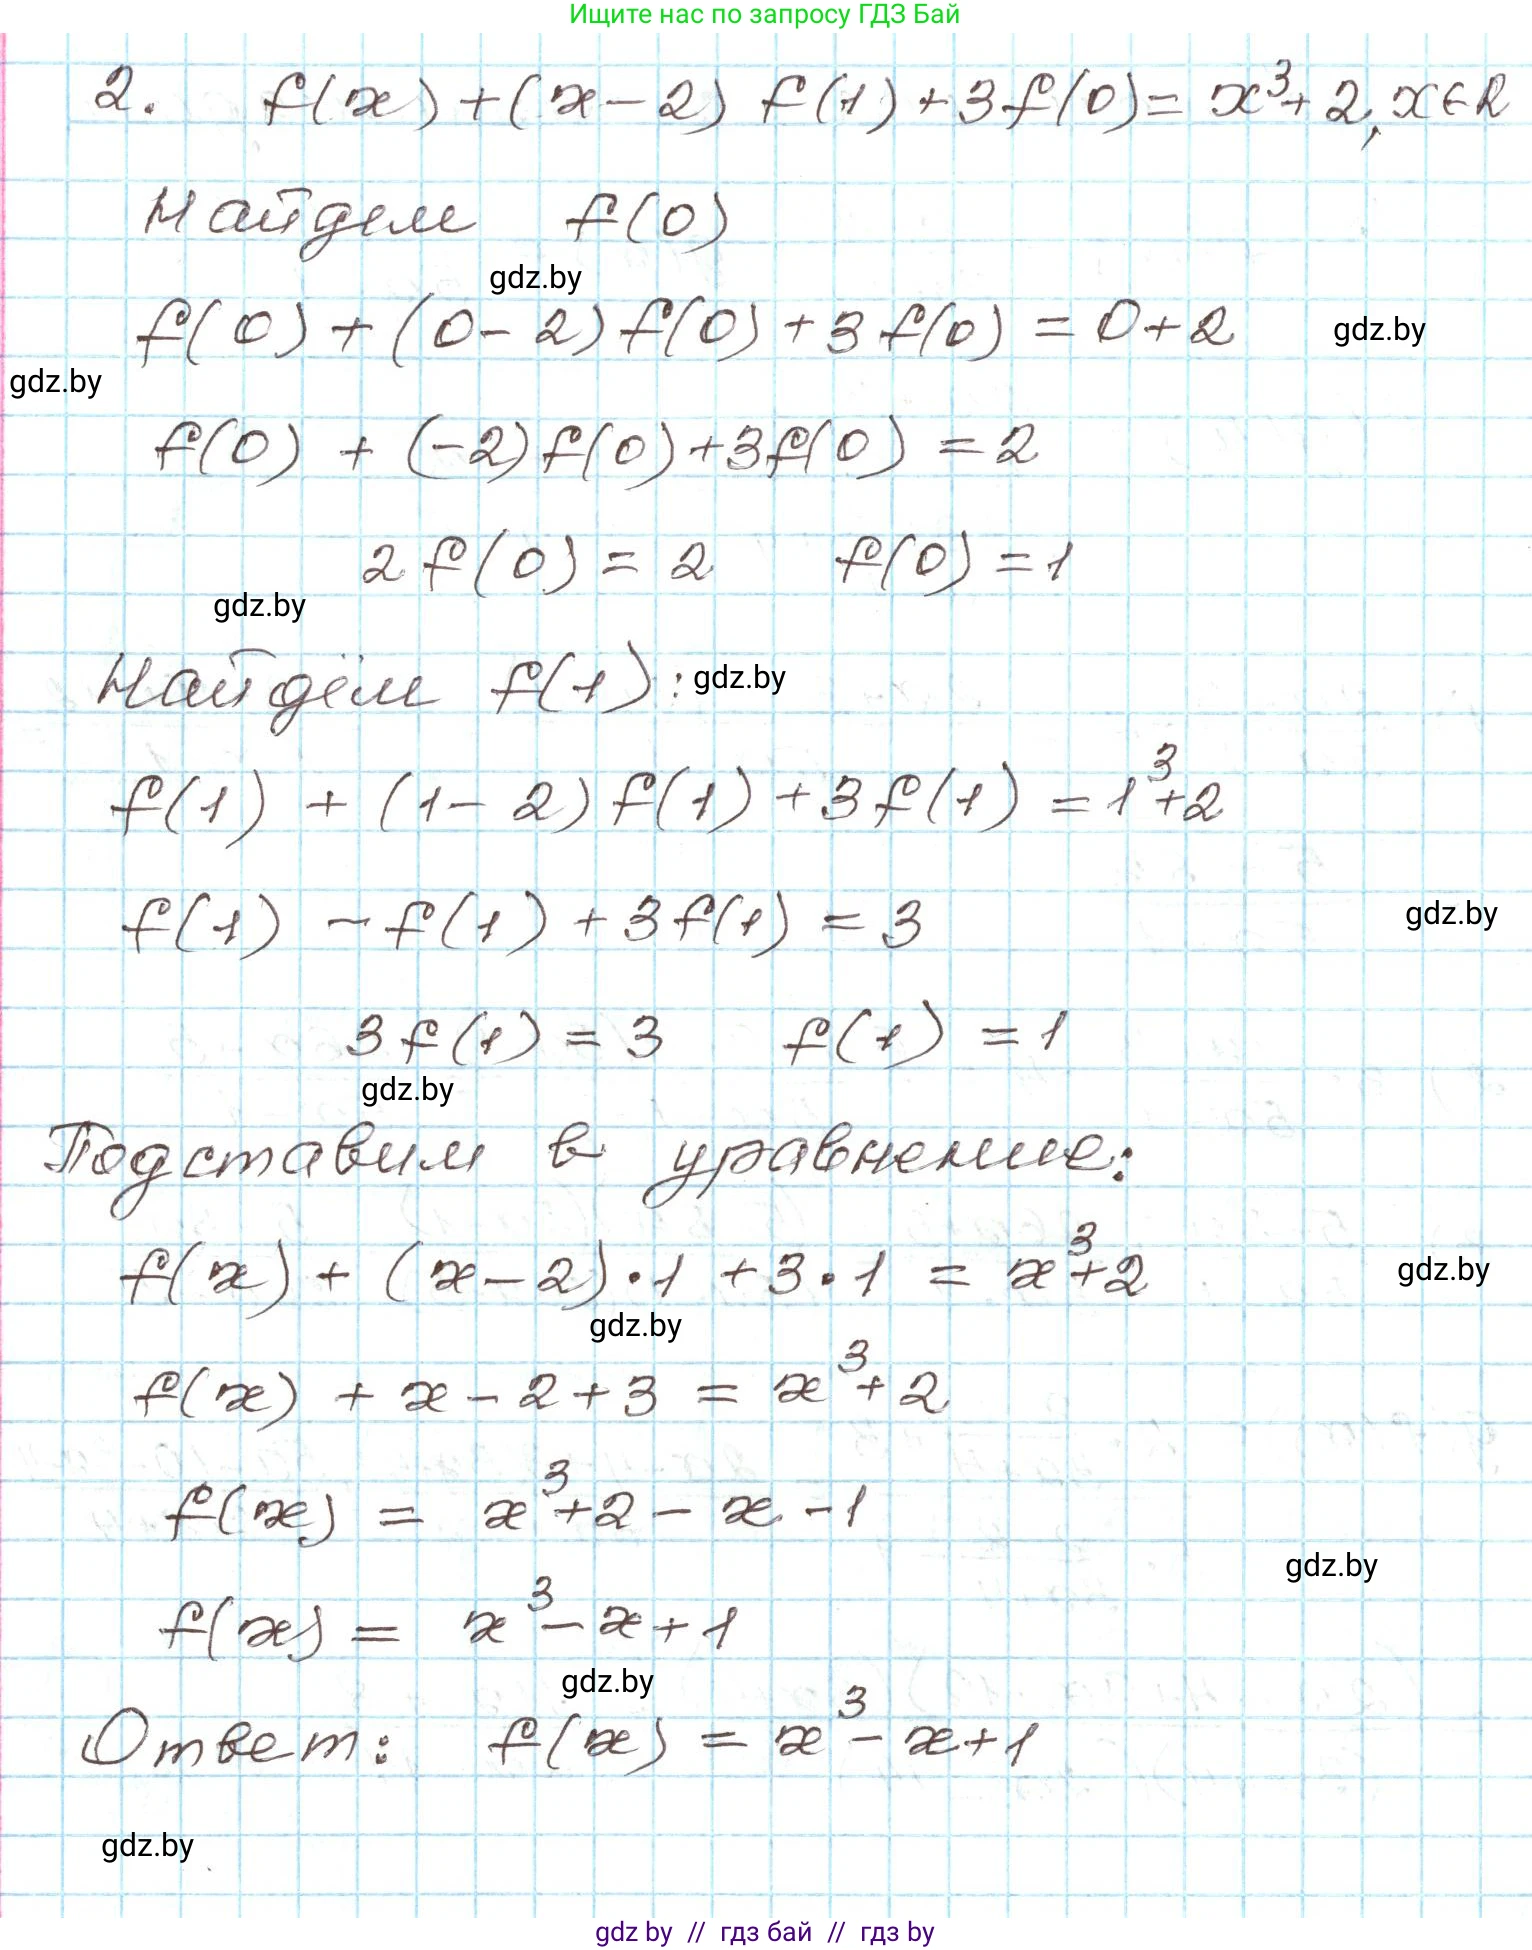 Ищите нас по запросу ГДЗ Бай
2. f(x) + (x - 2) f(1) + 3f(0) = x³ + 2, x ∈ R
Найдем f(0)
gdz.by
f(0) + (0 - 2) f(0) + 3 f(0) = 0 + 2
gdz.by
gdz.by
f(0) + (-2) f(0) + 3f(0) = 2
2 f(0) = 2 f(0) = 1
gdz.by
Найдём f(1):
gdz.by
f(1) + (1 - 2) f(1) + 3 f(1) = 1³ + 2
f(1) - f(1) + 3 f(1) = 3
gdz.by
3 f(1) = 3 f(1) = 1
gdz.by
Подставим в уравнение:
f(x) + (x - 2) · 1 + 3 · 1 = x³ + 2
gdz.by
gdz.by
f(x) + x - 2 + 3 = x³ + 2
f(x) = x³ + 2 - x - 1
gdz.by
f(x) = x³ - x + 1
gdz.by
Ответ: f(x) = x³ - x + 1
gdz.by
gdz by // гдз бай // гдз by